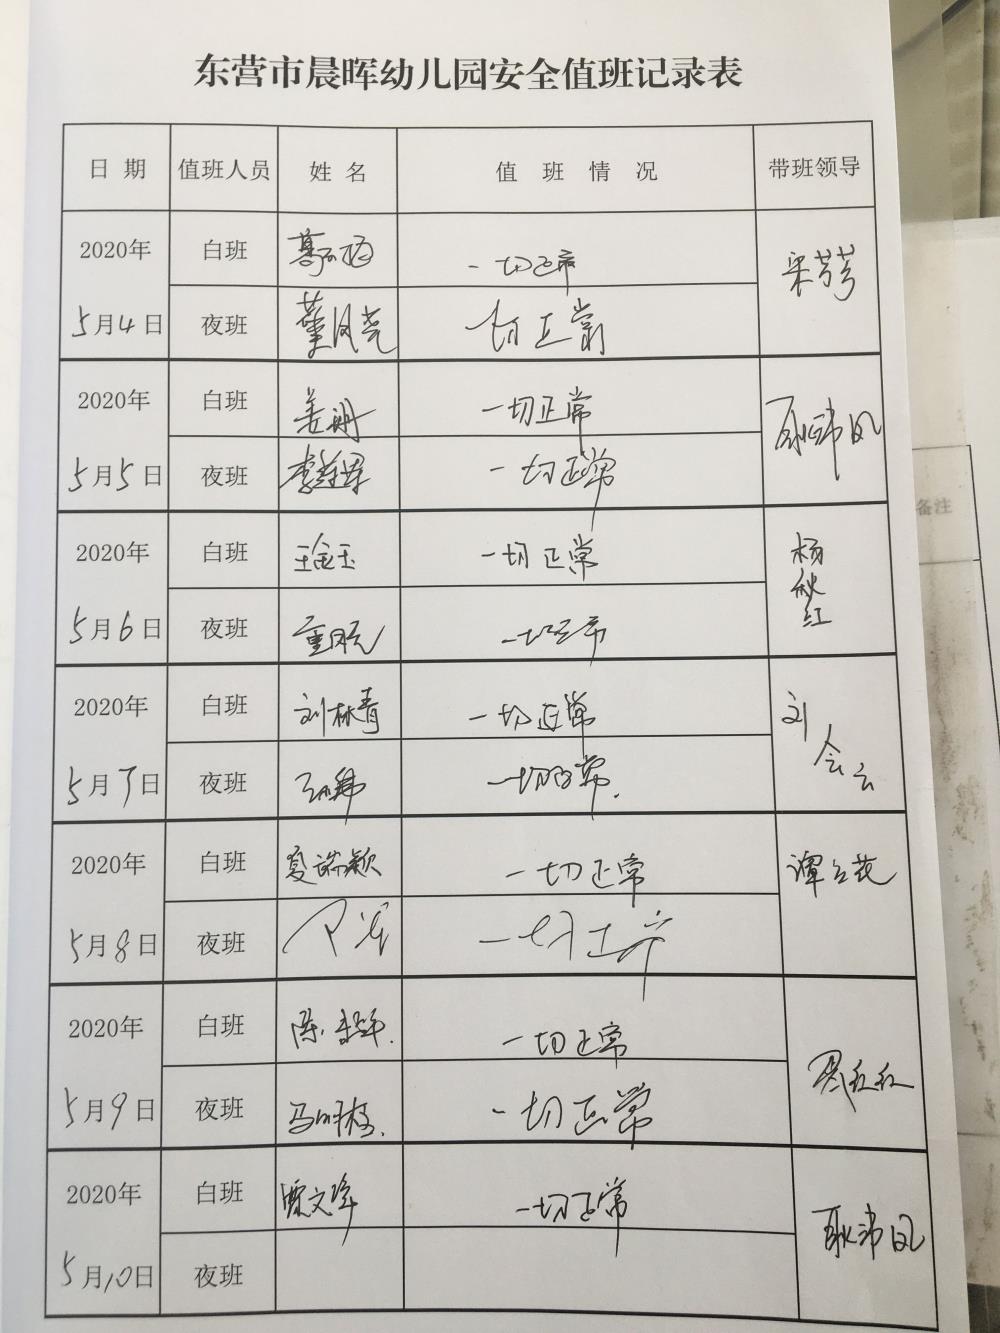 东营市晨晖幼儿园安全值班记录表
日期 值班人员 姓名 值班情况 带班领导
2020年 白班 一切正常
5月4日 夜班 董凤尧 一切正常
2020年 白班 姜珊 一切正常 耿沛凤
5月5日 夜班 一切正常
2020年 白班 王金玉 一切正常 杨秋红
5月6日 夜班 一切正常
2020年 白班 刘林青 一切正常 刘会云
5月7日 夜班 一切正常
2020年 白班 夏瑞颖 一切正常 谭立花
5月8日 夜班 一切正常
2020年 白班 陈 一切正常
5月9日 夜班 马 一切正常
2020年 白班 贾文 一切正常 耿沛凤
5月10日 夜班
备注